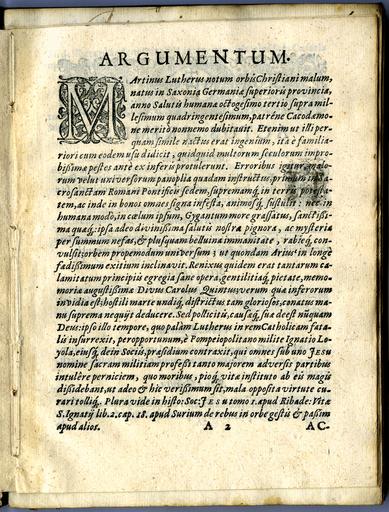 ARGUMENTUM.
MArtinus Lutherus notum orbis Christiani malum,
natus in Saxonia Germaniæ superioris provincia,
anno Salutis humanæ octogesimo tertio supra mil-
lesimum quadringentesimum, patréne Cacodæmo-
ne meritò nonnemo dubitavit. Etenim ut illi per-
quam simile nactus erat ingenium, ità è familia-
riori cum eodem usu didicit, quidquid multorum seculorum impro-
bissimæ pestes ante ex inferis protulerunt. Erroribus
velut universorum panoplia quadam instructus, primùm
crosanctam Romani Pontificis sedem, supremamq́; in terris potesta-
tem, ac inde in bonos omnes signa infesta, animosq́; sustulit: nec in
humana modò, in cœlum ipsum, Gygantum more grassatus, sanctissi-
ma quæq́; ipsa adeo divinissima salutis nostræ pignora, ac mysteria
per summum nefas, & plusquam belluina immanitate, rabieq́; con-
vulsit: orbem propemodum universum; ut quondam Arius in longè
fœdissimum exitium inclinavit. Renixus quidem erat tantarum ca-
lamitatum principiis egregia sane opera, gentilitiaq́; pietate, memo-
riæ augustissimæ Divus Carolus Quintus, verum quia inferorum
invidia est; hostili marte undiq́; districtus tam gloriosos, conatus ma-
nu suprema nequijt deducere. Sed politicû, causæq́; suæ deest nûquam
Deus: ipso illo tempore, quo palàm Lutherus in rem Catholicam fata-
lis insurrexit, peropportunum, è Pompeiopolitano milite Ignatio Lo-
yola, eiusq́; dein Sociis, præsidium contraxit, qui omnes sub uno JESU
nomine sacram militiam professi tanto majorem adversis partibus
intulêre perniciem, quo moribus, pioq́; vitæ instituto ab eis magis
dissidebant, ut adeo & hic verissimum sit, mala opposita virtute cu-
rari tolliq́;. Plura vide in histo: Soc: JESU tomo 1. apud Ribade: Vitæ
S. Ignatij lib. 2. cap. 18. apud Surium de rebus in orbe gestis & passim
apud alios. A 2 AC-